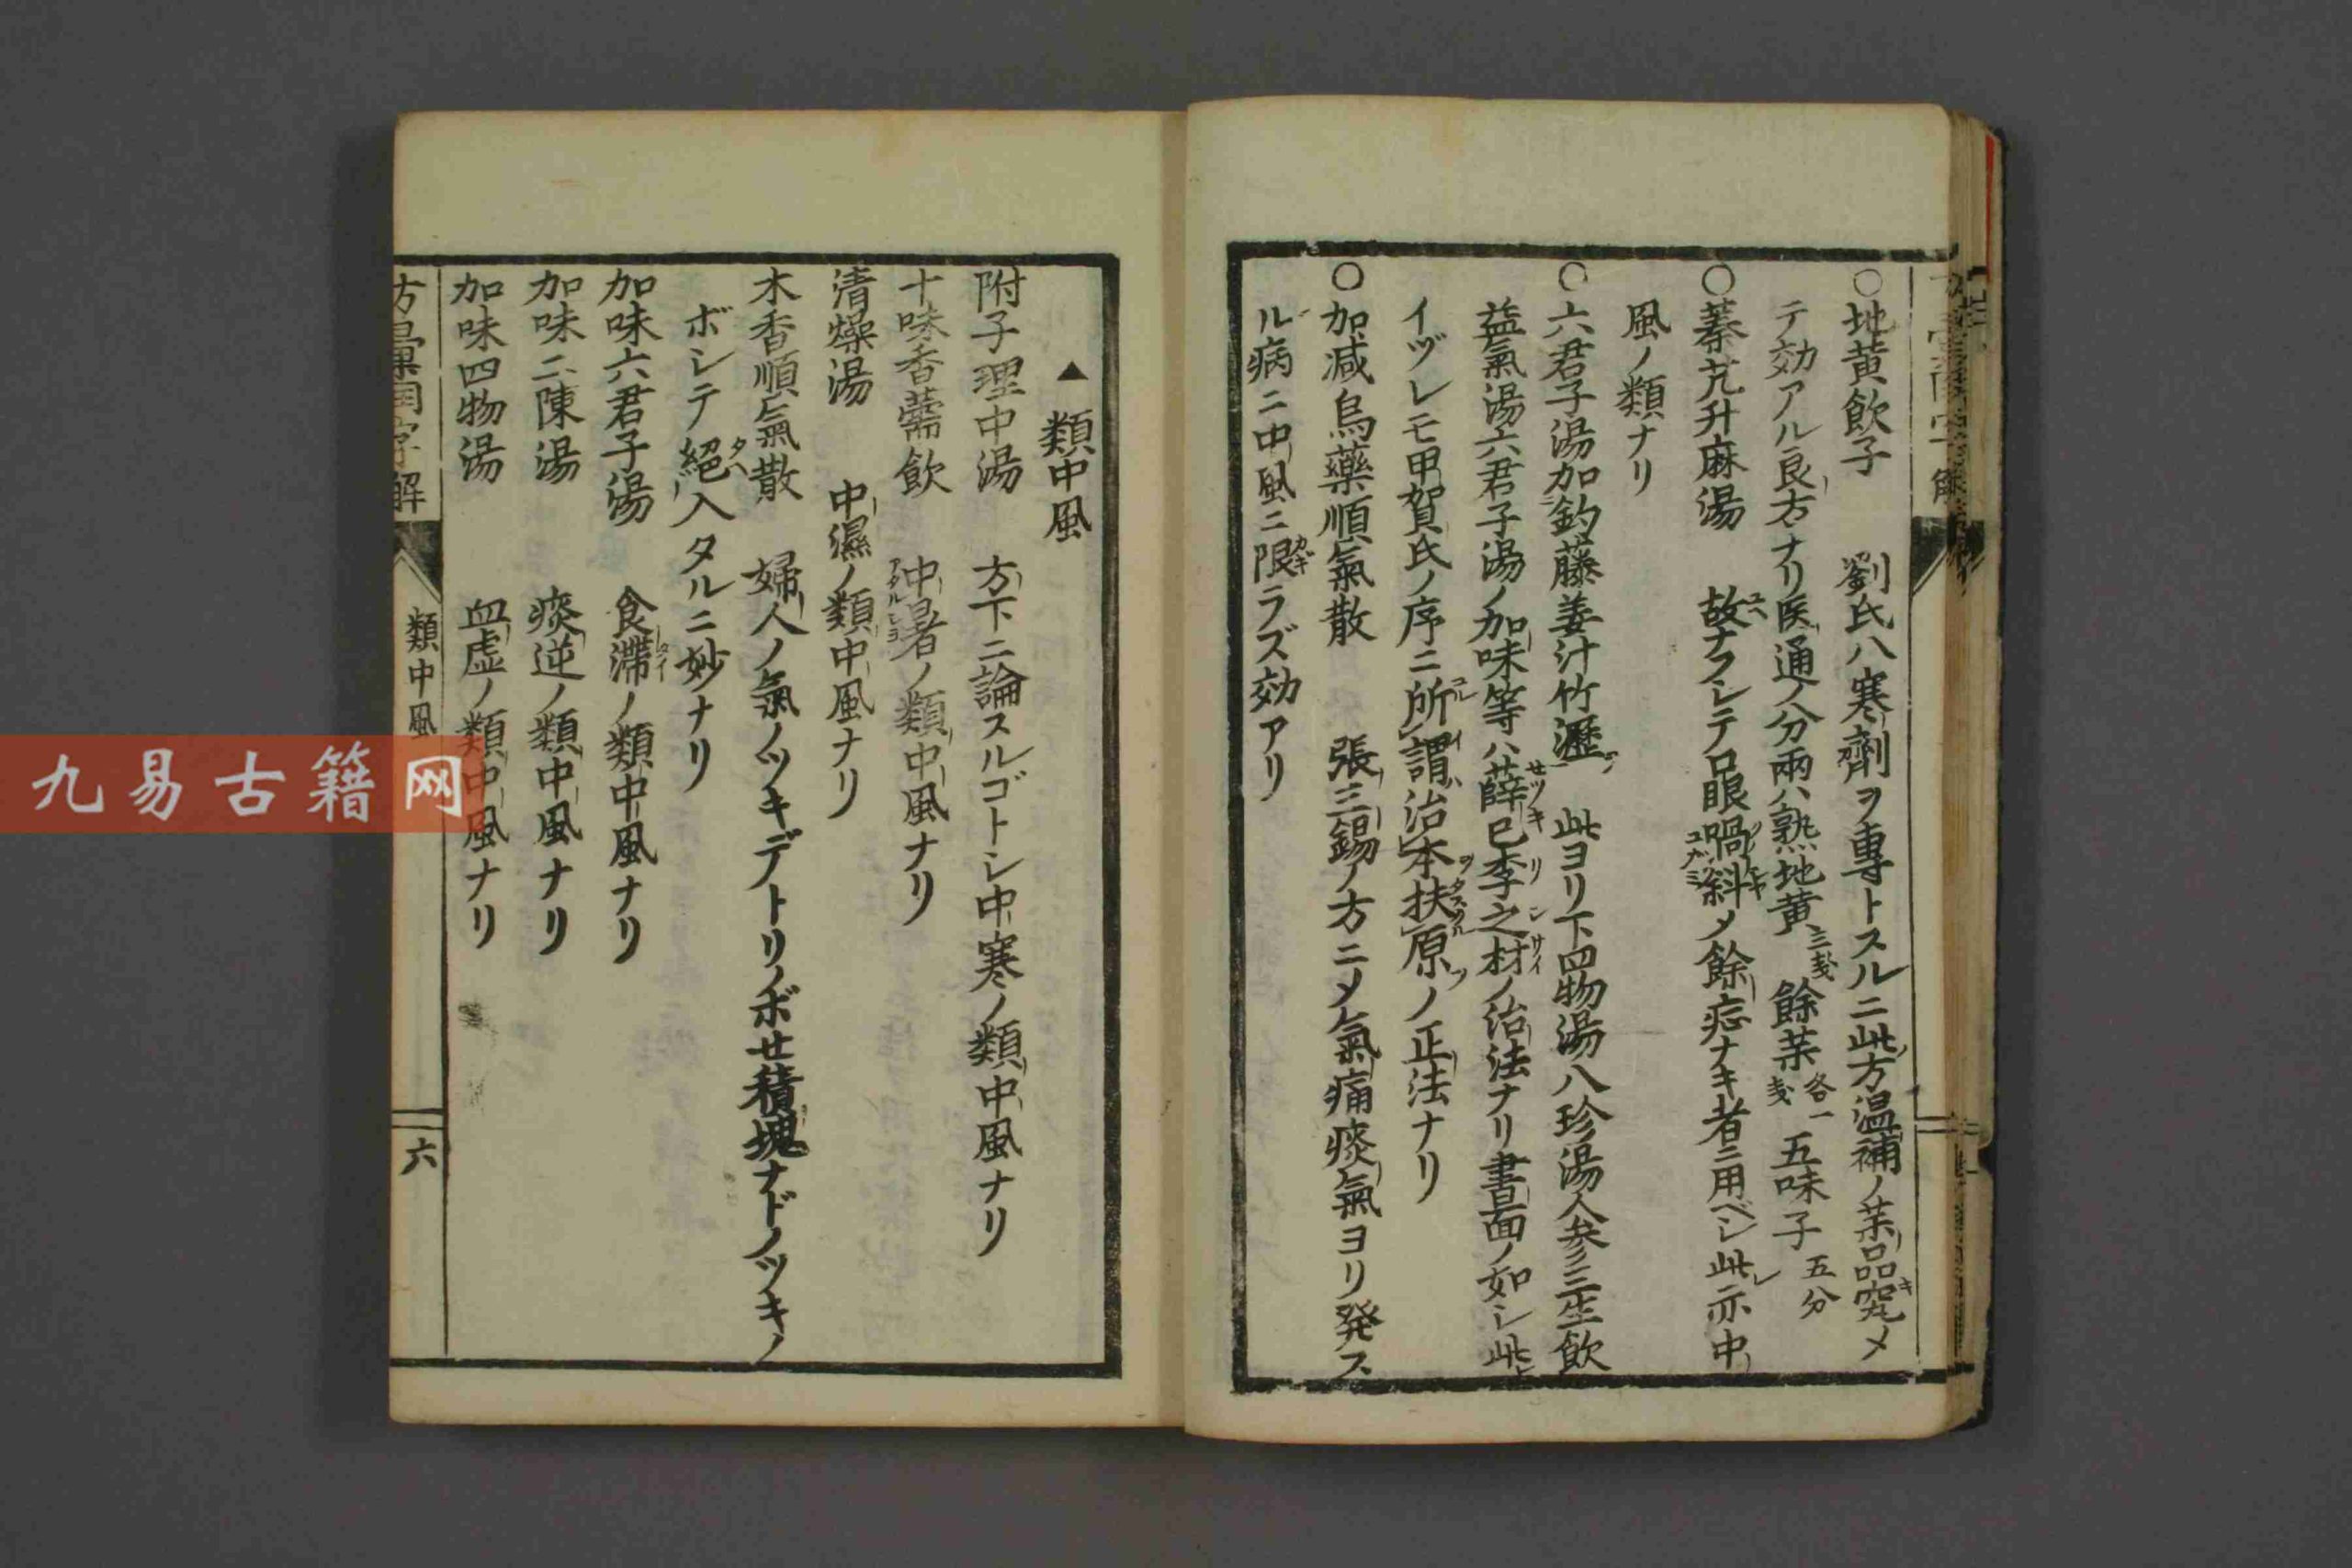 ○地黄飲子 劉氏八寒劑ヲ專トスルニ此方温補ノ薬品究メ
テ効アル良方ナリ医通ノ分兩ハ熟地黄三戔 餘薬各一戔 五味子五分
○蓁艽升麻湯 故ナフシテ口眼喎斜メ餘症ナキ者ニ用ベシ此亦中
風ノ類ナリ
○六君子湯加釣藤姜汁竹瀝 此ヨリ下四物湯八珍湯人参三生飲
益氣湯六君子湯ノ加味等ハ薛巳李之材ノ治法ナリ書面ノ如シ此
イヅレモ甲賀氏ノ序ニ所謂治本扶原ノ正法ナリ
○加减烏藥順氣散 張三錫ノ方ニメ氣痛痰氣ヨリ発ス
ル病ニ中風ニ限ラズ効アリ
▲類中風
附子理中湯 方下ニ論スルゴトシ中寒ノ類中風ナリ
十味香薷飲 中暑ノ類中風ナリ
清燥湯 中濕ノ類中風ナリ
木香順氣散 婦人ノ氣ノツキデトリノボセ積塊ナドノツキノ
ボレテ絕入タルニ妙ナリ
加味六君子湯 食滯ノ類中風ナリ
加味二陳湯 痰逆ノ類中風ナリ
加味四物湯 血虚ノ類中風ナリ
方彙国字解 類中風 六
九易古籍网